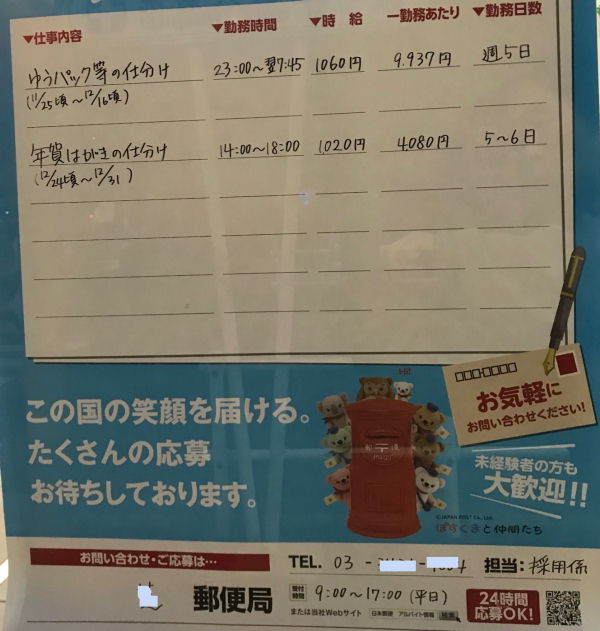 ▼仕事内容 ▼勤務時間 ▼時 給 一勤務あたり ▼勤務日数
ゆうパック等の仕分け 23:00〜翌7:45 1060円 9.937円 週5日
(11/25頃〜12/16頃)
年賀はがきの仕分け 14:00〜18:00 1,020円 4,080円 5〜6日
(12/24頃〜12/31)
Hi!
お気軽に
お問い合わせください!
この国の笑顔を届ける。
たくさんの応募
お待ちしております。
郵便
POST
未経験者の方も
大歓迎!!
©JAPAN POST Co., Ltd.
ぽすくまと仲間たち
お問い合わせ・ご応募は…
TEL. 03 - - 担当: 採用係
郵便局
受付時間 9:00〜17:00 (平日)
または当社Webサイト 日本郵便 アルバイト情報 検索
24時間
応募OK!